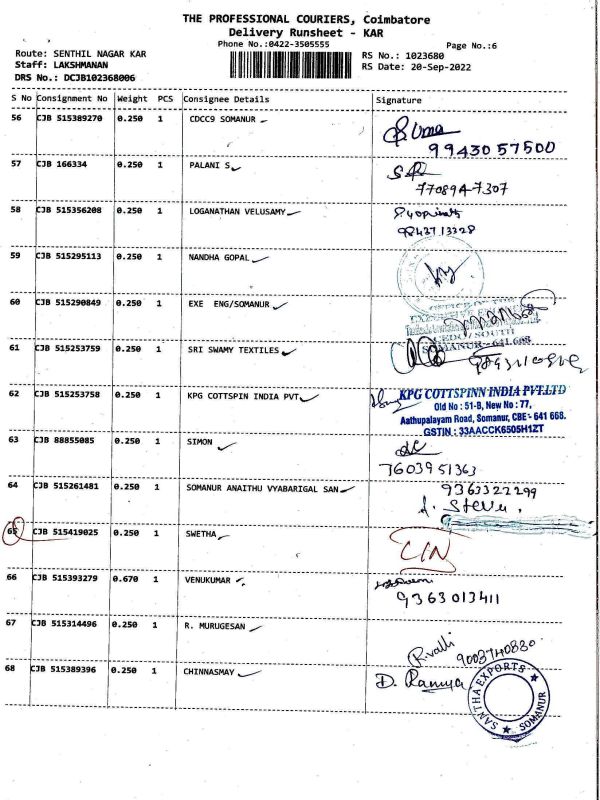 THE PROFESSIONAL COURIERS, Coimbatore
Delivery Runsheet - KAR
Phone No.:0422-3505555
Page No.:6
Route: SENTHIL NAGAR KAR
RS No.: 1023680
Staff: LAKSHMANAN
RS Date: 20-Sep-2022
DRS No.: DCJB102368006
S No Consignment No Weight PCS Consignee Details Signature
56 CJB 515389270 0.250 1 CDCC9 SOMANUR
Uma
99430 57500
57 CJB 166334 0.250 1 PALANI S
770894-7307
58 CJB 515356208 0.250 1 LOGANATHAN VELUSAMY
9843713328
59 CJB 515295113 0.250 1 NANDHA GOPAL
60 CJB 515290849 0.250 1 EXE ENG/SOMANUR
SOMANUR - 641 668
61 CJB 515253759 0.250 1 SRI SWAMY TEXTILES
62 CJB 515253758 0.250 1 KPG COTTSPIN INDIA PVT
KPG COTTSPINN INDIA PVT.LTD
Old No : 51-B, New No : 77,
Aathupalayam Road, Somanur, CBE - 641 668.
GSTIN : 33AACCK6505H1ZT
63 CJB 88855085 0.250 1 SIMON
7603951363
64 CJB 515261481 0.250 1 SOMANUR ANAITHU VYABARIGAL SAN
9363322299
65 CJB 515419025 0.250 1 SWETHA
66 CJB 515393279 0.670 1 VENUKUMAR
9363013411
67 CJB 515314496 0.250 1 R. MURUGESAN
R.valli
9003740830
68 CJB 515389396 0.250 1 CHINNASMAY
D. Ramya
SANTHA EXPORTS
SOMANUR